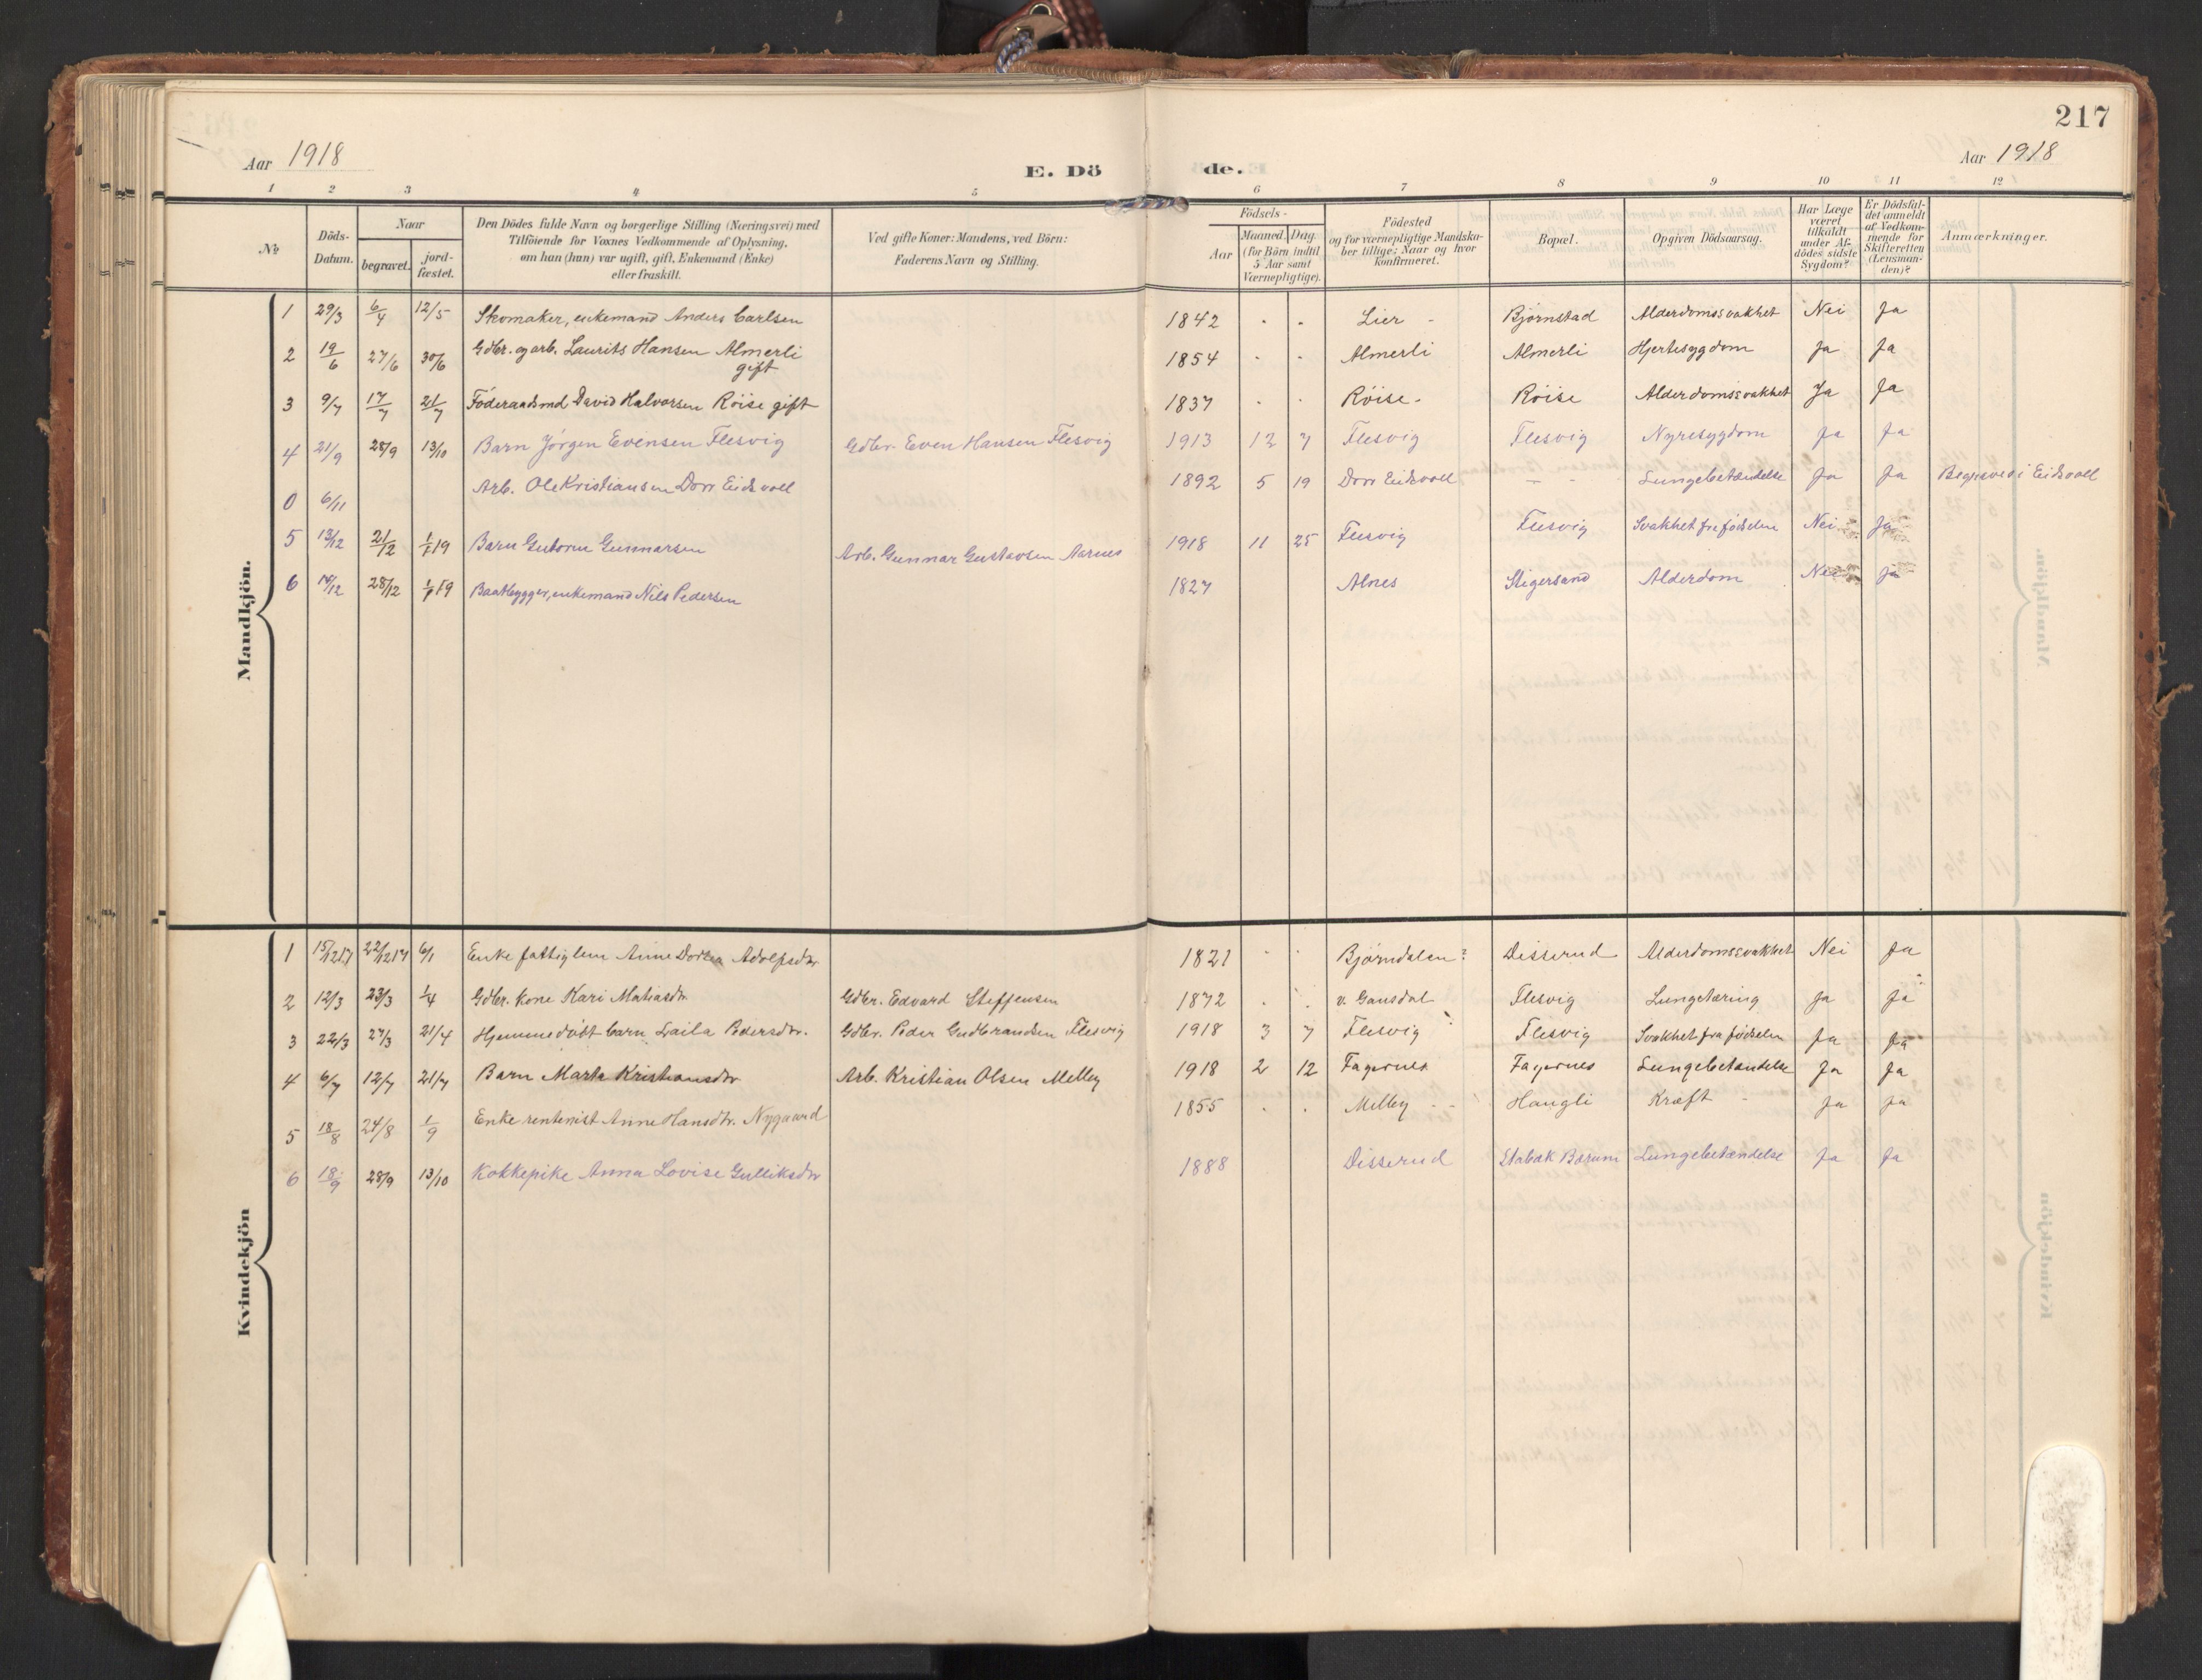 217
Aar 1918
E. Dö de.
Aar 1918
1 2 3 4 5 6 7 8 9 10 11 12
No
Döds-Datum.
Naar
begravet.
jord-fæstet.
Den Dödes fulde Navn og borgerlige Stilling (Næringsvei) med
Tilföiende for Voxnes Vedkommende af Oplysning,
om han (hun) var ugift, gift, Enkemand (Enke)
eller fraskilt.
Ved gifte Koner: Mandens, ved Börn:
Faderens Navn og Stilling.
Födsels-
Aar
Maaned. Dag.
(for Börn indtil
5 Aar samt
Værnepligtige).
Födested
og for værnepligtige Mandska-
ber tillige: Naar og hvor
konfirmeret.
Bopæl.
Opgiven Dödsaarsag.
Har Læge
været
tilkaldt
under Af-
dödes sidste
Sygdom?
Er Dödsfal-
det anmeldt
af Vedkom-
mende for
Skifteretten
(Lensman-
den)?
Anmærkninger.
Mandkjön.
1 29/3 6/4 12/5 Skomaker, enkemand Anders Carlsen 1842 . . Lier - Bjørnstad Alderdomssvakhet Nei Ja
2 19/6 27/6 30/6 Gdbr. og arb. Laurits Hansen Almerli 1854 . . Almerli Almerli Hjertesygdom Ja Ja
gift
3 9/7 17/7 21/7 Föderaadsmd David Halvorsen Röise gift 1837 . . Röise - Röise Alderdomssvakhet Ja Ja
4 21/9 28/9 13/10 Barn Jörgen Evensen Flesvig Gdbr. Even Hansen Flesvig 1913 12 7 Flesvig Flesvig Nyresygdom Ja Ja
0 6/11 Arb. Ole Kristiansen Dorr Eidsvoll 1892 5 19 Dorr Eidsvoll - - Lungebetændelse Ja Ja Begravet i Eidsvoll
5 13/12 21/12 1/1 19 Barn Gutorm Gunnarsen Arb. Gunnar Gustavsen Aarnes 1918 11 25 Flesvig Flesvig Svakhet fra födselen Nei Ja
6 /12 28/12 1/1 19 Baatbygger, enkemand Nils Pedersen 1827 Alnes Stigersand Alderdom Nei Ja
Kvindekjön
1 15/12 17 22/12 17 6/1 Enke fattiglem Anne Dortea Adolfsdtr 1821 . . Björndalen? Disserud Alderdomssvakhet Nei Ja
2 12/3 23/3 1/4 Gdbr. kone Kari Matiasdtr. Gdbr. Edvard Steffensen 1872 . . v. Gausdal Flesvig Lungetæring Ja Ja
3 22/3 27/3 21/4 Hjemmedöbt barn Laila Pedersdtr. Gdbr. Peder Gudbrandsen Flesvig 1918 3 7 Flesvig Flesvig Svakhet fra födselen Ja Ja
4 6/7 12/7 21/7 Barn Marta Kristiansdtr Arb. Kristian Olsen Melby 1918 2 12 Fagernes Fagernes Lungebetændelse Ja Ja
5 18/8 24/8 1/9 Enke rentenist Anne Hansdtr. Nygaard 1855 . . Melby - - Haugli Kræft - Ja Ja
6 18/9 28/9 13/10 Kokkepike Anna Lovise Gulliksdtr 1888 Disserud Stabæk Bærum Lungebetændelse Ja Ja